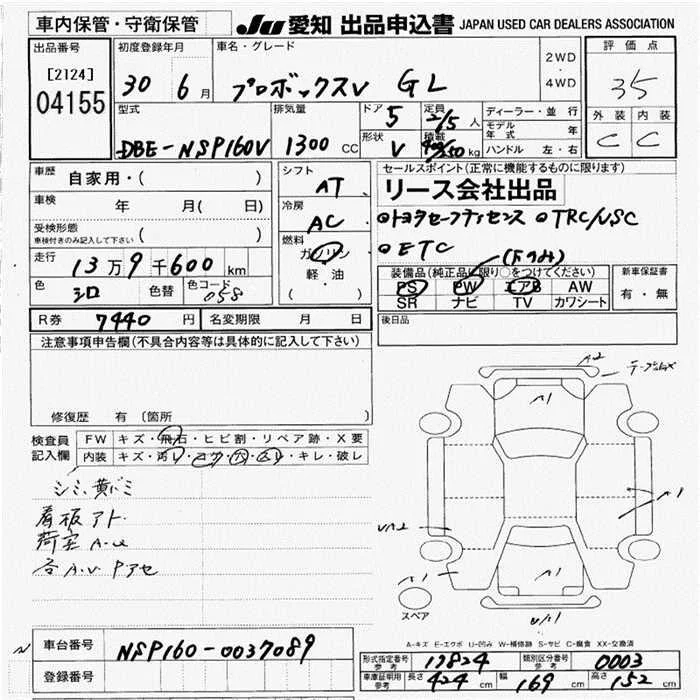 車内保管・守衛保管 JU 愛知 出品申込書 JAPAN USED CAR DEALERS ASSOCIATION
出品番号 初度登録年月 車名・グレード 2WD ・ 4WD 評価点
[2124] 04155 30 6月 プロボックスV GL 35
型式 排気量 ドア 5 定員 2/5人 ディーラー・並行 外装 内装
DBE-NSP160V 1300 CC 形状 V 積載 kg モデル年式 年 C C
ハンドル 左・右
車歴 自家用・( ) シフト AT セールスポイント(正常に機能するものに限ります)
車検 年 月( 日) 冷房 AC リース会社出品
受検形態 車検付きのみ記入して下さい ( ) 燃料 ガソリン ・ 軽・油 ( )
◎トヨタセーフティセンス ◎TRC/VSC
走行 13万9千600km ◎ETC (Fのみ)
色 シロ 色替 色コード 058 装備品(純正品に限り○をつけてください) 新車保証書
PS PW エアB AW 有・無
SR ナビ TV カワシート
R券 7440円 名変期限 月 日 後日品
注意事項申告欄(不具合内容等は具体的に記入して下さい)
修復歴 有 〔箇所
検査員記入欄 FW キズ・飛石・ヒビ割・リペア跡・X要
内装 キズ・汚レ・コゲ・穴・スレ・キレ・破レ
シミ、黄バミ
看板アト
荷室 A・U
各A.V Pアセ
A2
A1
A1
A1
A1
U/A1
スペア
A-キズ E-エクボ U-凹み W-補修跡 S-サビ C-腐食 XX-交換済
車台番号 NSP160-0037089
登録番号
形式指定番号 参考 17824 類別区分番号 参考 0003
車庫証明用 参考 長さ 424cm 幅 169cm 高さ 152cm